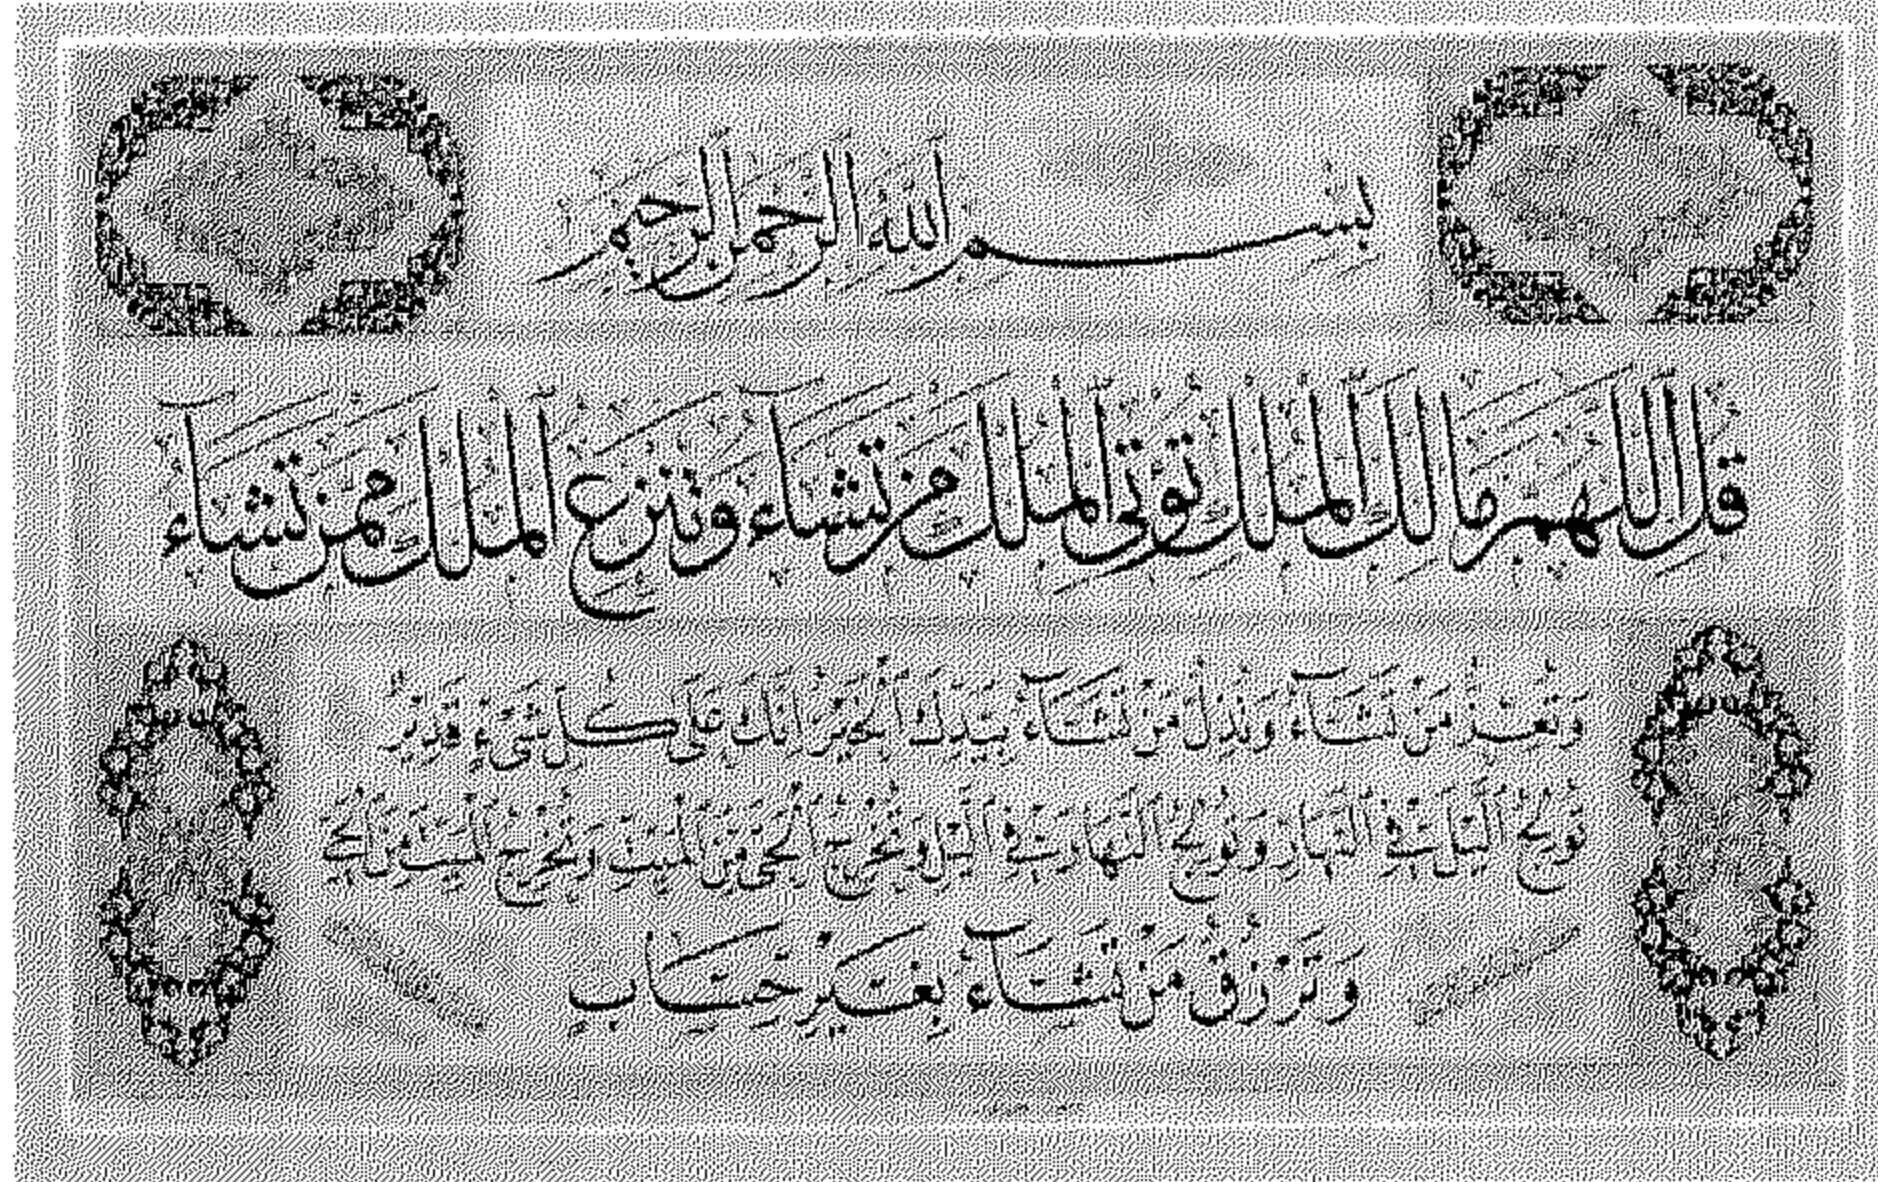 بسم الله الرحمن الرحيم
قل اللهم مالك الملك تؤتى الملك من تشآء وتنزع الملك ممن تشآء
وَتُعِزُّ مَنْ تَشَآءُ وَتُذِلُّ مَنْ تَشَآءُ بِيَدِكَ الْخَيْرُ اِنَّكَ عَلَى كُلِّ شَىْءٍ قَدِيْرٌ
تُوْلِجُ الَّيْلَ فِى النَّهَارِ وَتُوْلِجُ النَّهَارَ فِى الَّيْلِ وَتُخْرِجُ الْحَىَّ مِنَ الْمَيِّتِ وَتُخْرِجُ الْمَيِّتَ مِنَ الْحَىِّ
وَتَرْزُقُ مَنْ تَشَآءُ بِغَيْرِ حِسَابٍ